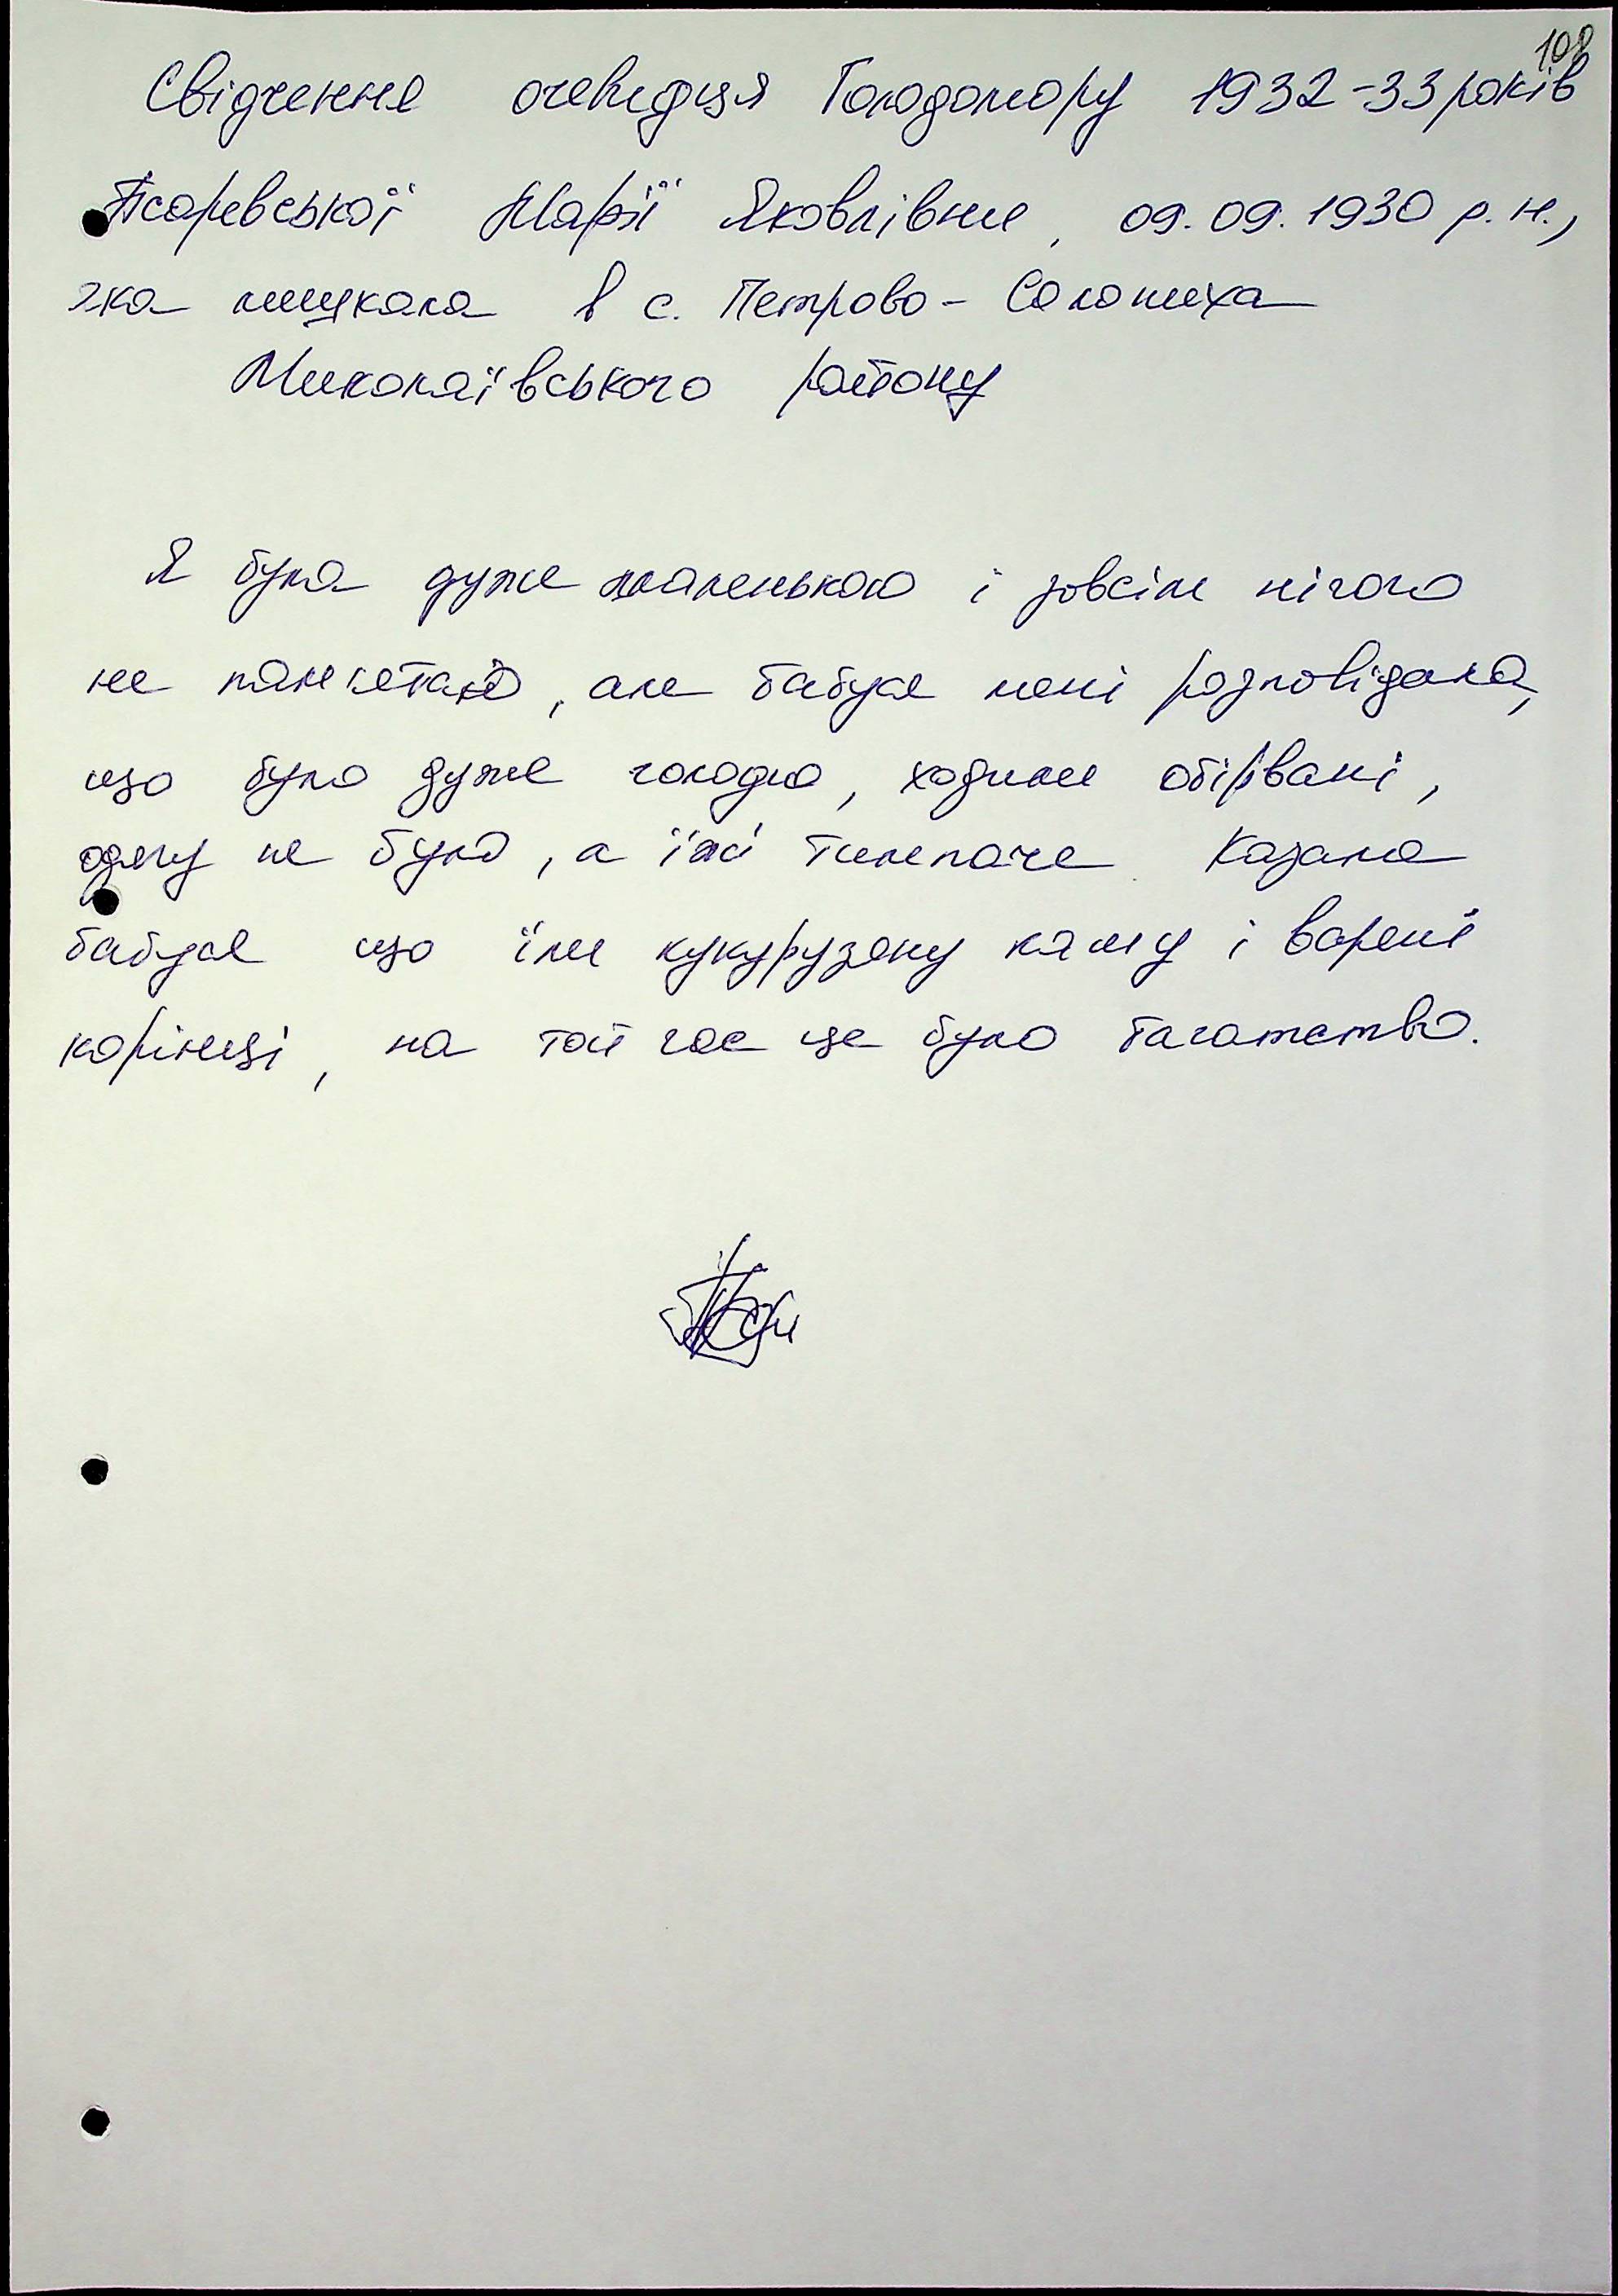 108
Свідчення очевидця Голодомору 1932-33 років
Псаревської Марії Яковлівни, 09.09.1930 р.н.,
яка мешкала в с. Петрово-Солониха
Миколаївського району
Я була дуже маленькою і зовсім нічого
не памятаю, але бабуся мені розповідала,
що було дуже голодно, ходили обірвані,
одягу не було, а їжі тимпаче. Казала
бабуся що їли кукурузяну кашу і варені
корінці, на той час це було багатство.